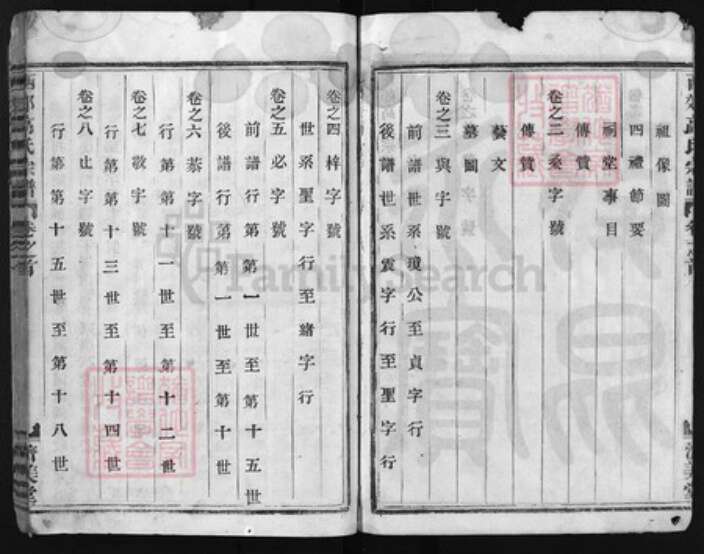 祖像圖
四禮節要
祠堂事目
傳贊
卷之二桑字號
傳贊
藝文
墓圖
卷之三與字號
前譜世系瓊公至貞字行
後譜世系震字行至聖字行
卷之四梓字號
世系聖字行至緒字行
卷之五必字號
前譜行第第一世至第十五世
後譜行第第一世至第十世
卷之六恭字號
行第第十一世至第十二世
卷之七敬字號
行第第十三世至第十四世
卷之八止字號
行第第十五世至第十八世
高氏宗譜
清美堂
FamilySearch